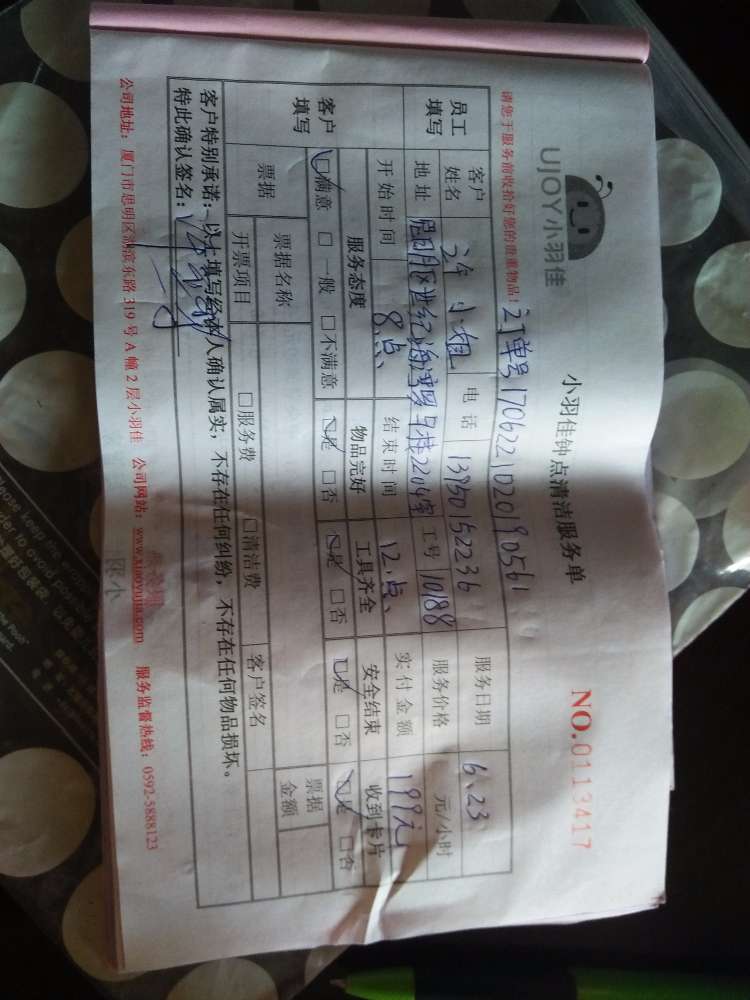 UJOY小羽佳
小羽佳钟点清洁服务单
NO.0113417
请您于服务前收拾好您的贵重物品! 订单号1706221020190561
员工填写 客户姓名 许小姐 电话 13950152236 服务日期 6、23
地址 世纪海湾 2204室 工号 10188 服务价格 元/小时
开始时间 8点、 结束时间 12点、 实付金额 199元
客户填写 服务态度 物品完好 工具齐全 安全结束 收到卡片
☑满意 □一般 □不满意 ☑是 □否 ☑是 □否 ☑是 □否 ☑是 □否
票据 票据名称 客户签名 票据金额
开票项目 □服务费 □清洁费
客户特别承诺:以上填写经本人确认属实,不存在任何纠纷,不存在任何物品损坏。
特此确认签名:
公司地址:厦门市思明区湖滨东路 319 号 A 幢 2 层小羽佳 公司网站:www.xiaoyujia.com 服务监督热线:0592-5888123